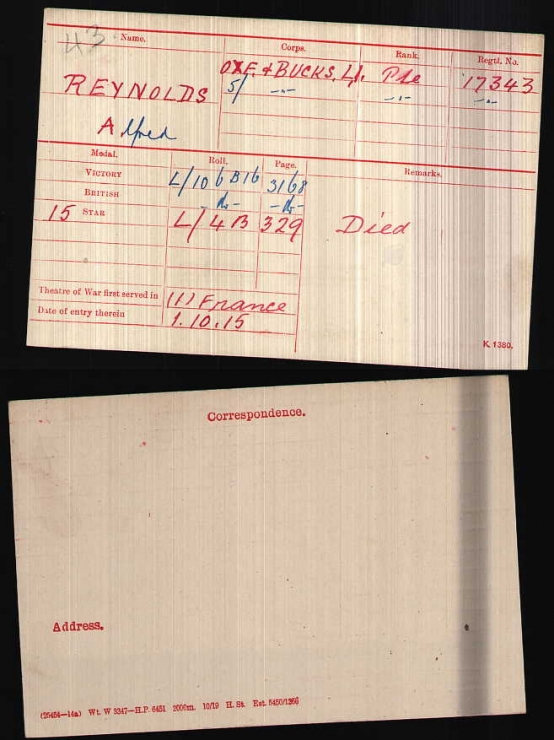 43
Name. Corps. Rank. Regtl. No.
REYNOLDS OXF. & BUCKS. L.I. Pte 17343
5/ -"- -"- -"-
Alfred
Medal. Roll. Page. Remarks.
VICTORY L/106 B16 3168
BRITISH -do- -do-
15 STAR L/4B 329 Died
Theatre of War first served in (1) France
Date of entry therein 1.10.15
K. 1380.
Correspondence.
Address.
(35454—14a) Wt. W 3347—H.P. 6451 2000m. 10/19 H. St. Est. 5450/1266